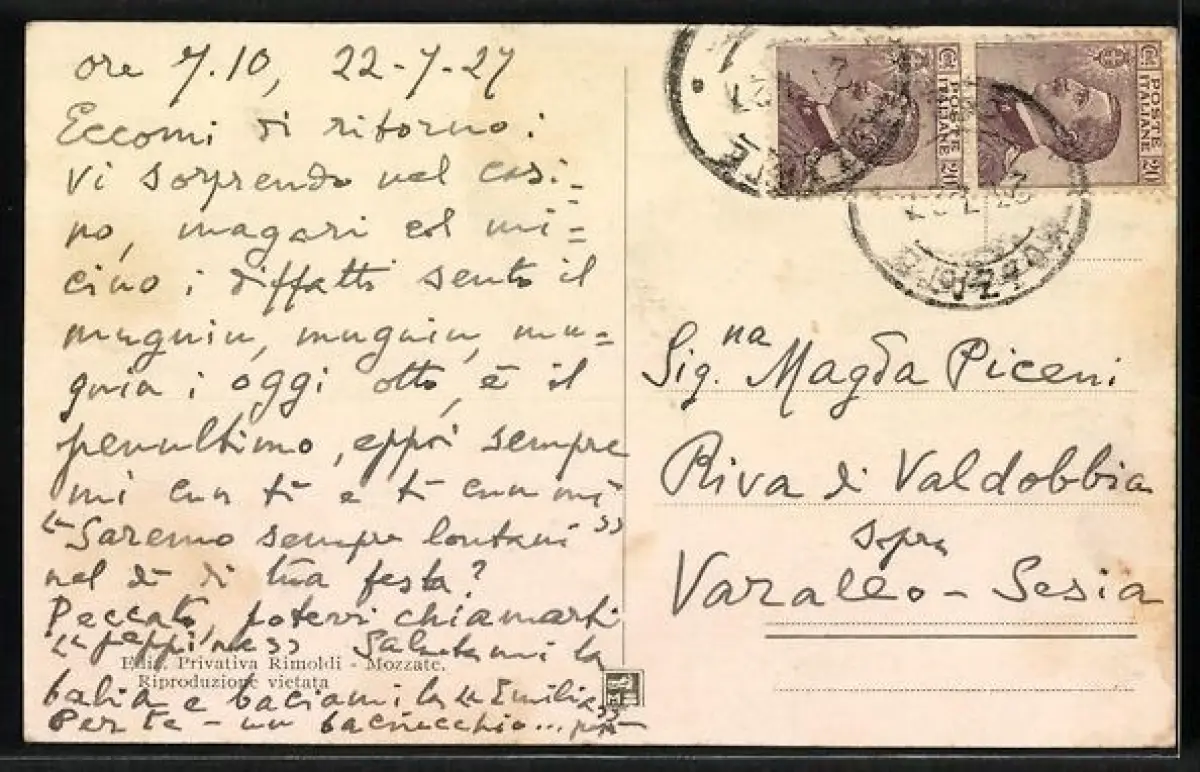 ore 7.10, 22-7-27
Eccomi di ritorno:
Vi sorprendo nel casi-
no, magari col mi=
cino; diffatti sento il
mugniu, mugniu, mu=
gniu; oggi otto, è il
penultimo, eppoi sempre
mi cun ti e ti cun mi
"Saremo sempre lontani"
nel dì di tua festa?
Peccato, potervi chiamarti
"Peppina" Salutami la
balia e baciami la "Emilia"
Per te - un bacucchio...
Ediz. Privativa Rimoldi - Mozzate.
Riproduzione vietata
POSTE ITALIANE
Cent 20
POSTE ITALIANE
Cent 20
MOZZATE
Sig.na Magda Piceni
Riva di Valdobbia
sopra
Varallo - Sesia